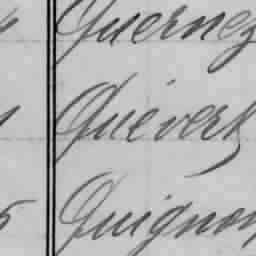 Quernez
Quéverk
5 Quignon